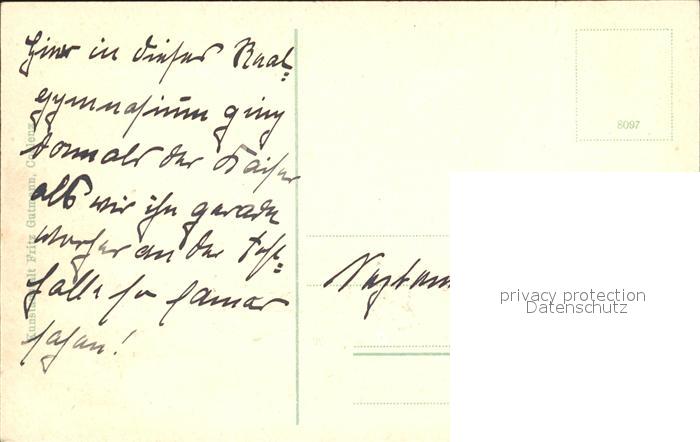 Hier in dieser Real=
gymnasium ging
damals der Kaiser
als wir ihn gerade
vorher an der Fest=
halle so famos
sahen!
Kunstanstalt Fritz Gutmann, Coblenz
8097
privacy protection
Datenschutz